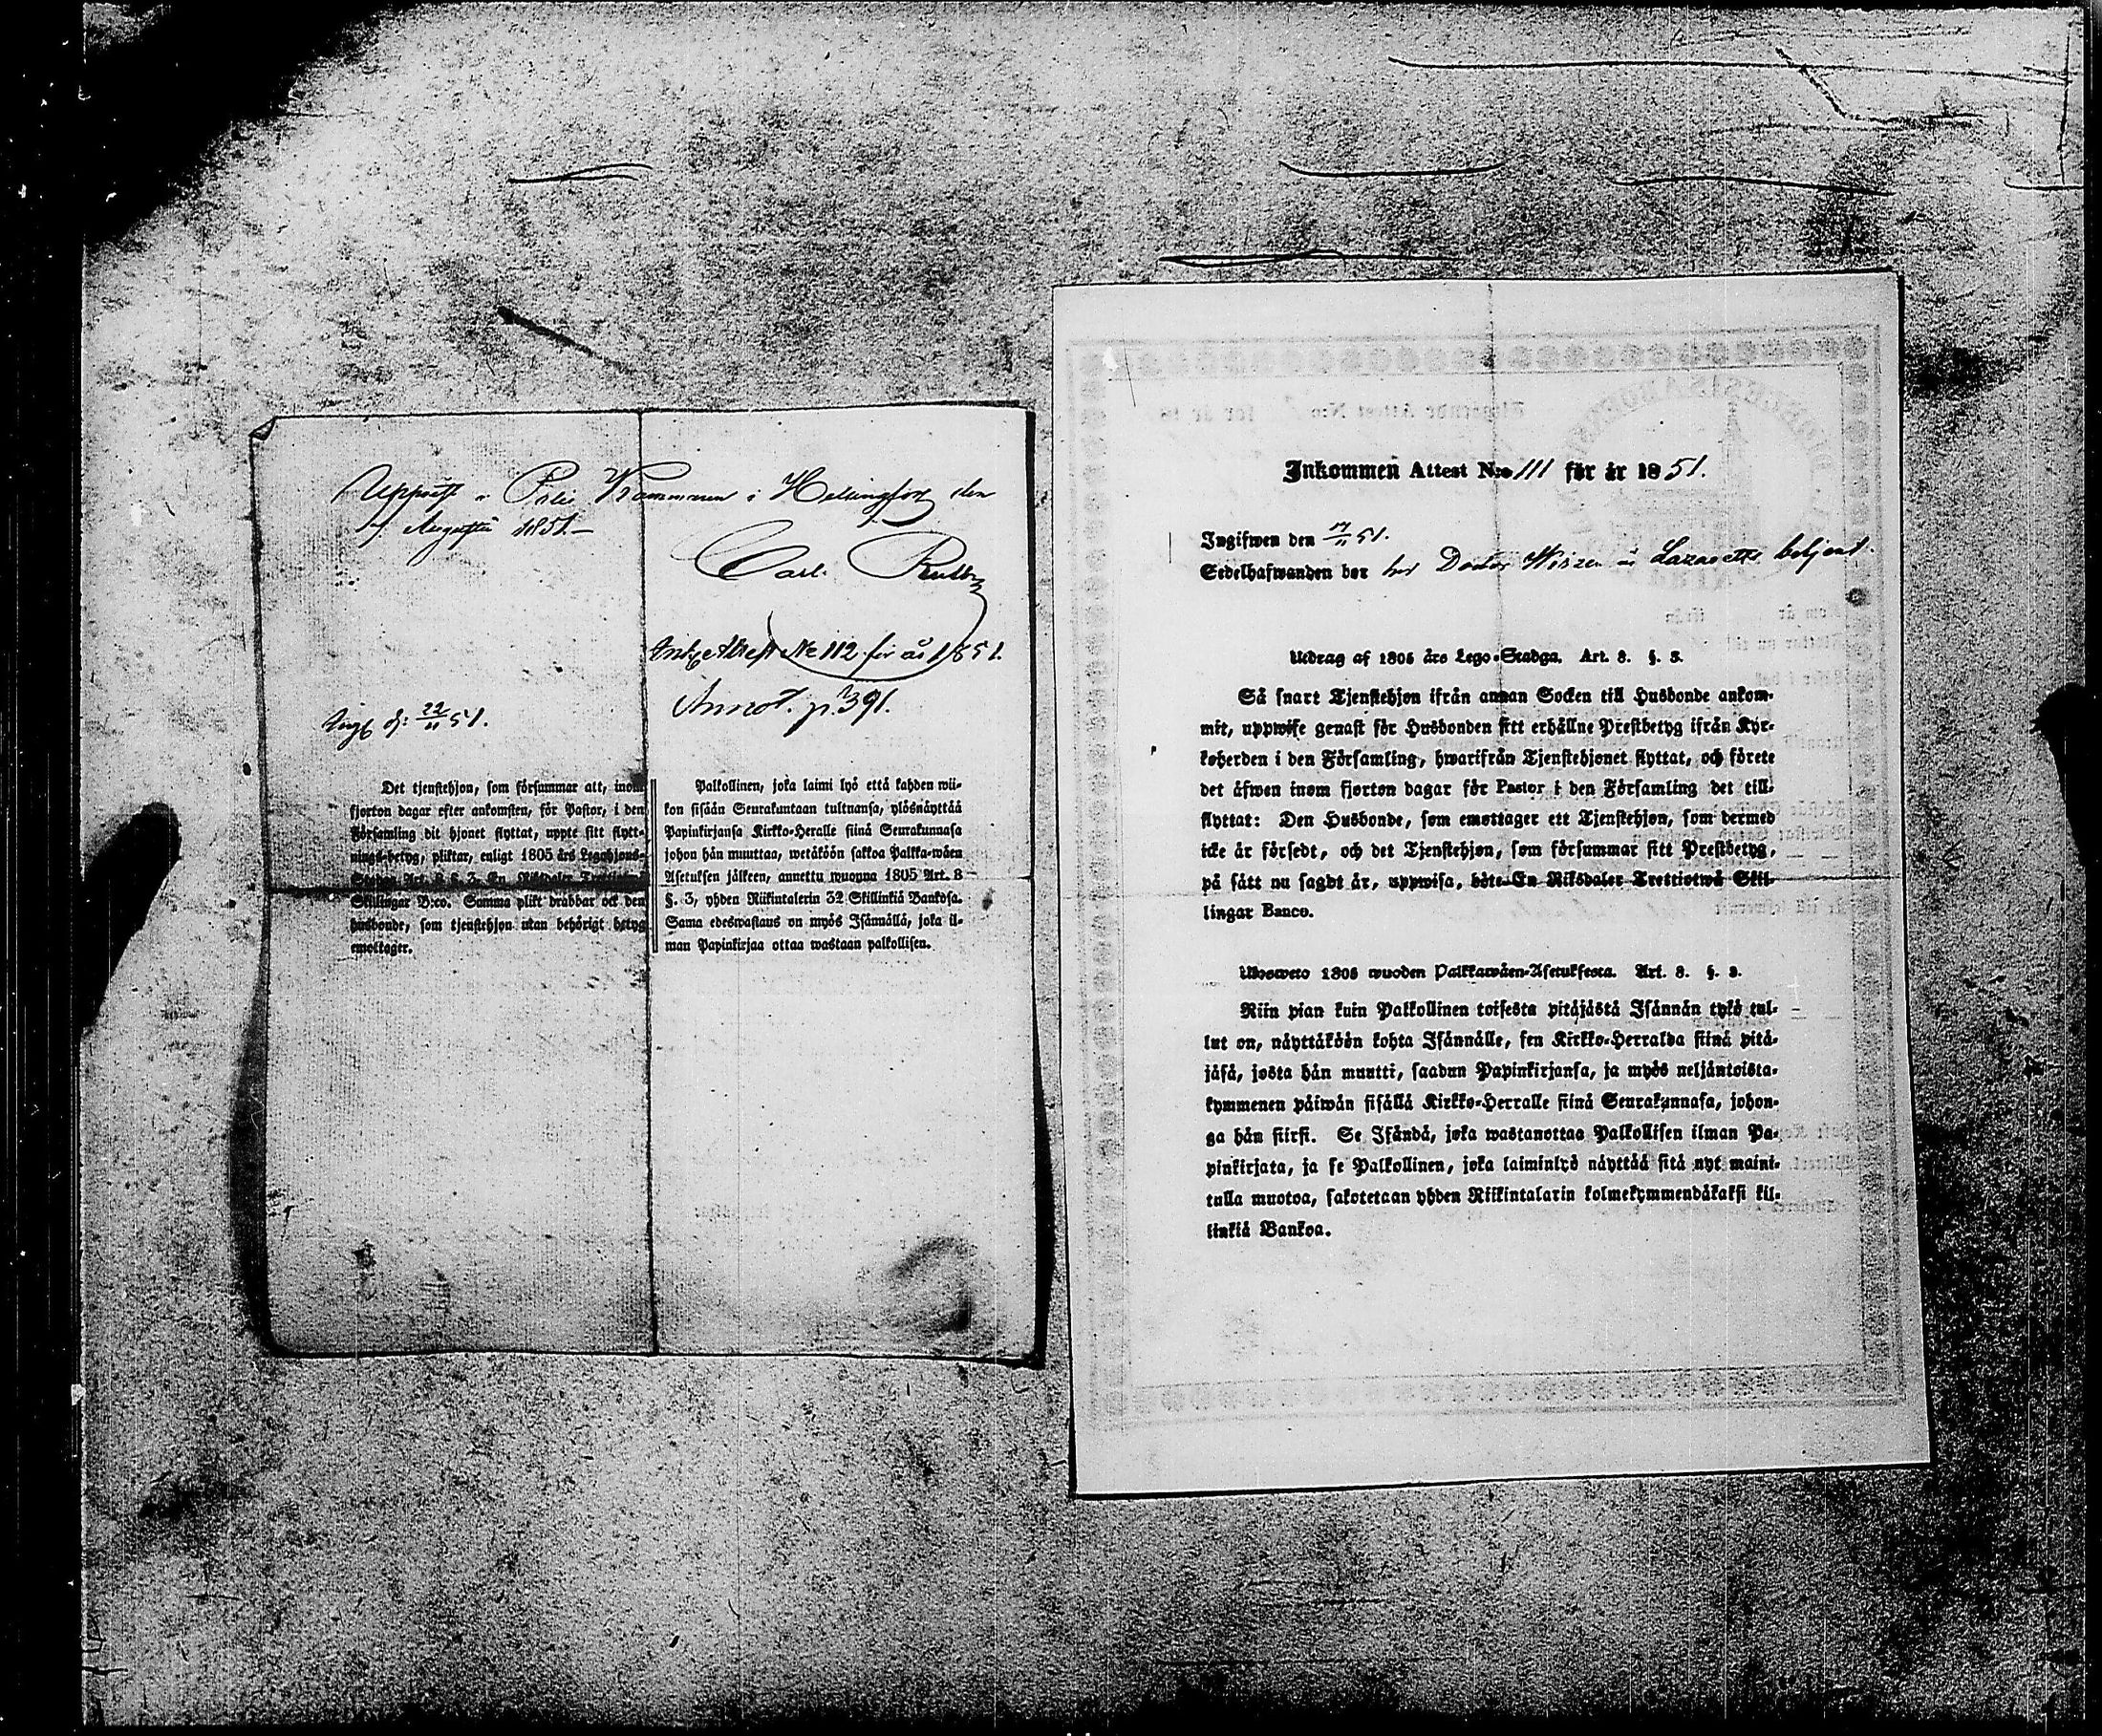 Uppvist i Polis Kammaren i Helsingfors den
Augusti 1851.
Carl
Ink. Attest No 112 för år 1851.
Annot. p. 391.
Ingf d: 22/11 51.
Det tjenstehjon, som försummar att, inom
fjorton dagar efter ankomsten, för Pastor, i den
Församling dit hjonet flyttat, uppte sitt flytt-
nings-betyg, pliktar, enligt 1805 års Legohjons-
Stadga Art. 8 §. 3, En Riksdaler Trettiotwå
Skillingar B:co. Samma plikt drabbar ock den
husbonde, som tjenstehjon utan behörigt betyg
emottager.
Palkollinen, joka laimi lyö että kahden wii-
kon sisään Seurakuntaan tultuansa, ylösnäyttää
Papinkirjansa Kirkko-Heralle siinä Seurakunnasa
johon hän muuttaa, wetäköön sakkoa Palkka-wäen
Asetuksen jälkeen, annettu wuonna 1805 Art. 8
§. 3, yhden Riikintalerin 32 Skillinkiä Bankosa.
Sama edeswastaus on myös Isännällä, joka il-
man Papinkirjaa ottaa wastaan palkollisen.
Inkommen Attest N:o 111 för år 1851.
Ingifwen den 17/11 51.
Sedelhafwanden bor hos Doctor Lazaretts betjent.
Utdrag af 1805 års Lego-Stadga. Art. 8. §. 3.
Så snart Tjenstehjon ifrån annan Socken till Husbonde ankom-
mit, uppwise genast för Husbonden sitt erhållne Prestbetyg ifrån Kyr-
koherden i den Församling, hwarifrån Tjenstehjonet flyttat, och förete
det äfwen inom fjorton dagar för Pastor i den Församling det till-
flyttat: Den Husbonde, som emottager ett Tjenstehjon, som dermed
icke är försedt, och det Tjenstehjon, som försummar sitt Prestbetyg,
på sätt nu sagdt är, uppwisa, böte En Riksdaler Trettiotwå Skil-
lingar Banco.
Uloswето 1805 wuoden Palkkawäen-Asetuksesta. Art. 8. §. 3.
Niin pian kuin Palkollinen toisesta pitäjästä Isännän tykö tul-
lut on, näyttäköön kohta Isännälle, sen Kirkko-Herralda siinä pitä-
jäsä, josta hän muutti, saadun Papinkirjansa, ja myös neljäntoista-
kymmenen päiwän sisällä Kirkko-Herralle siinä Seurakunnasa, johon-
ga hän siirsi. Se Isändä, joka wastanottaa Palkollisen ilman Pa-
pinkirjata, ja se Palkollinen, joka laiminlyö näyttää sitä nyt maini-
tulla muotoa, sakotetaan yhden Riikintalarin kolmekymmendäkaksi kil-
linkiä Bankoa.